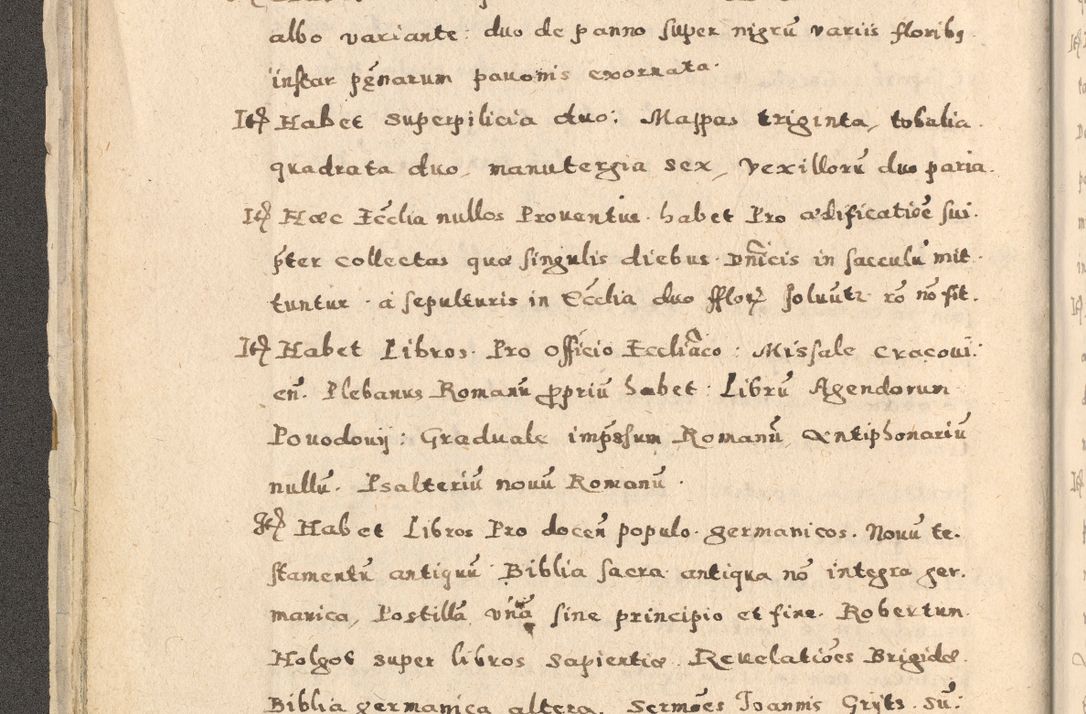 albo variante: duo de panno super nigrũ variis floribȝ
instar pẽnarum pauonis exornata.
Itẽ Habet superpilicia duo: Mappas triginta, tobalia
quadrata duo, manutergia sex, Vexillorũ duo paria.
Itẽ Hæc Ecc̃lia nullos Prouentus habet Pro ædificatiõe sui.
p̃ter collectas quæ singulis diebus Dñicis in sacculũ mit
tuntur. à sepulturis in Ecc̃lia duo fflorẽ soluũtr rõ nõ fit.
Itẽ Habet Libros Pro Officio Eccliãco: Missale Cracoui:
eñ. Plebanus Romanũ ꝓpriũ habet: Librũ Agendorum
Pouodouij: Graduale imp̃ssum Romanũ Antiphonariũ
nullũ. Psalteriũ nouũ Romanũ.
Itẽ Habet Libros Pro doceñ populo germanicos. Nouũ te.
stamentũ antiquũ Biblia sacra antiqua nõ integra ger.
manica, Postillã vnã sine principio et fine. Robertum
Holgot super libros Sapientiæ. Reuelatiões Brigidæ.
Biblia germanica altera. Sermões Joannis Grijts. Sũ: